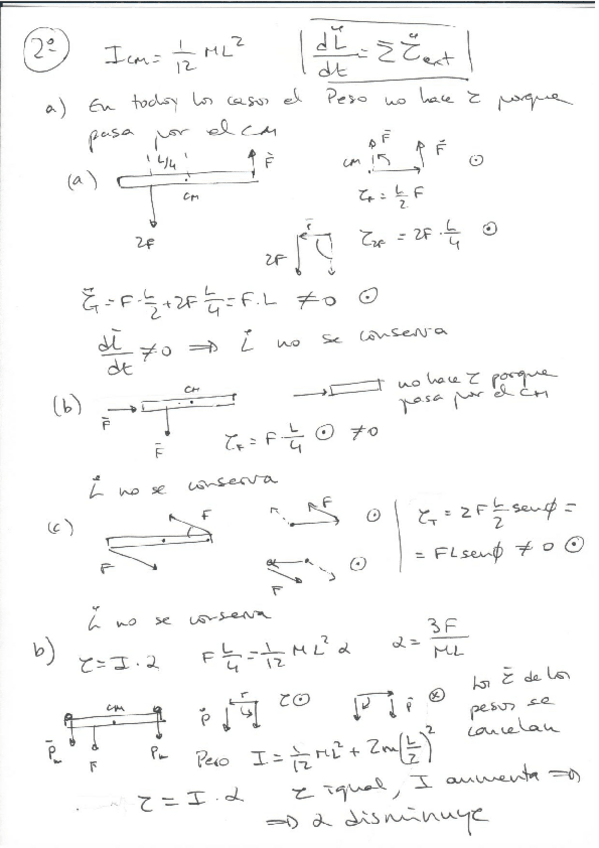 2º I_CM = 1/12 ML² | dL⃗/dt = Σ τ⃗ext |
a) En todos los casos el Peso no hace τ porque
pasa por el CM
(a) L/4 F⃗ CM 2F
CM F⃗ F⃗ ⊙
τ_F = L/2 F
r⃗ 2F τ_2F = 2F · L/4 ⊙
τ⃗_T = F · L/2 + 2F L/4 = F.L ≠ 0 ⊙
dL⃗/dt ≠ 0 ⇒ L⃗ no se conserva
(b) F⃗ CM F⃗ no hace τ porque
pasa por el CM
τ_F = F · L/4 ⊙ ≠ 0
L⃗ no se conserva
(c) F F F ⊙ F ⊙ τ_T = 2F L/2 senφ =
= FL senφ ≠ 0 ⊙
L⃗ no se conserva
b) τ = I · α F L/4 = 1/12 ML² α α = 3F/ML
CM P⃗ F P r p⃗ τ⊙ p⃗ ⊗ Los τ⃗ de los
pesos se
cancelan
Pero I = 1/12 ML² + 2m(L/2)²
τ = I · α τ igual, I aumenta ⇒
⇒ α disminuye